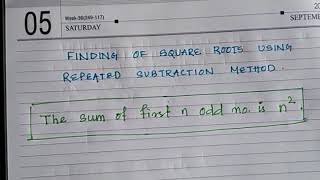 05
Week-36(249-117)
SATURDAY
20
SEPTEMBE
FINDING OF SQUARE ROOTS USING
REPEATED SUBTRACTION METHOD.
The sum of first n odd no. is n².